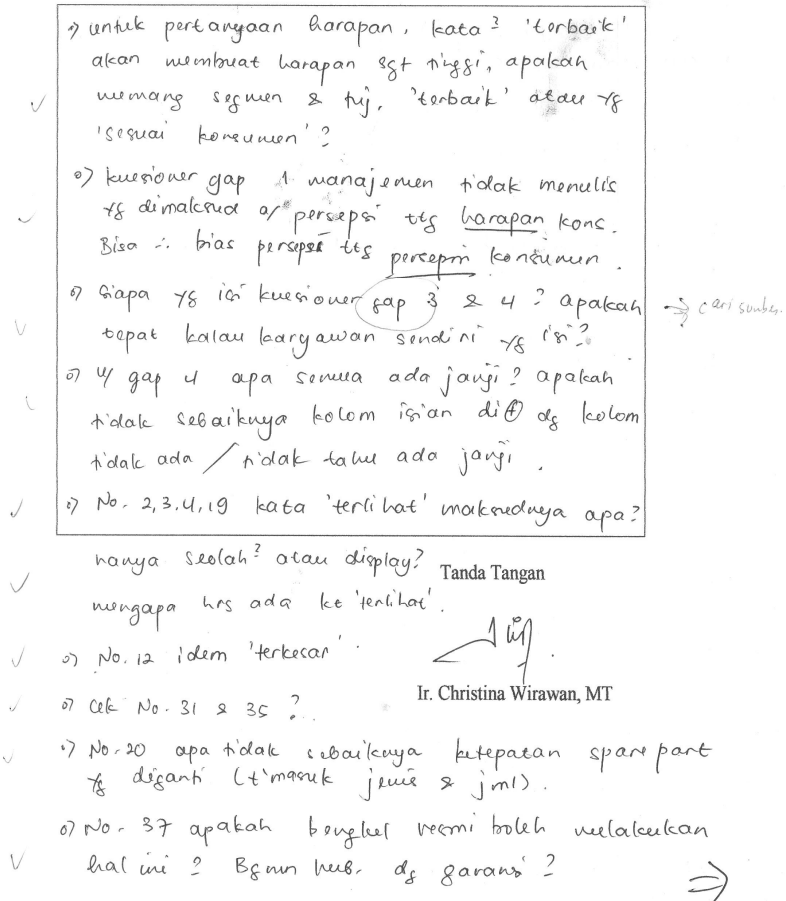 o) untuk pertanyaan harapan, kata² 'terbaik'
akan membuat harapan sgt tinggi, apakah
memang segmen & tuj. 'terbaik' atau yg
'sesuai konsumen'?
o) kuesioner gap 1 manajemen tidak menulis
yg dimaksud a/ persepsi ttg harapan kons.
Bisa ∴ bias persepsi ttg persepsi konsumen.
o) Siapa yg isi kuesioner gap 3 & 4? apakah → cari sumber.
tepat kalau karyawan sendiri yg isi?
o) u/ gap 4 apa semua ada janji? apakah
tidak sebaiknya kolom isian di ⊕ dg kolom
tidak ada / tidak tahu ada janji.
o) No. 2,3,4,19 kata 'terlihat' maksudnya apa?
hanya seolah² atau display?
Tanda Tangan
mengapa hrs ada kt 'terlihat'.
o) No. 12 idem 'terkesan'.
Ir. Christina Wirawan, MT
o) Cek No. 31 & 35 ?
o) No. 20 apa tidak sebaiknya ketepatan spare part
yg diganti (t'masuk jenis & jml).
o) No. 37 apakah bengkel resmi boleh melakukan
hal ini? Bgmn hub. dg garansi?
⇒